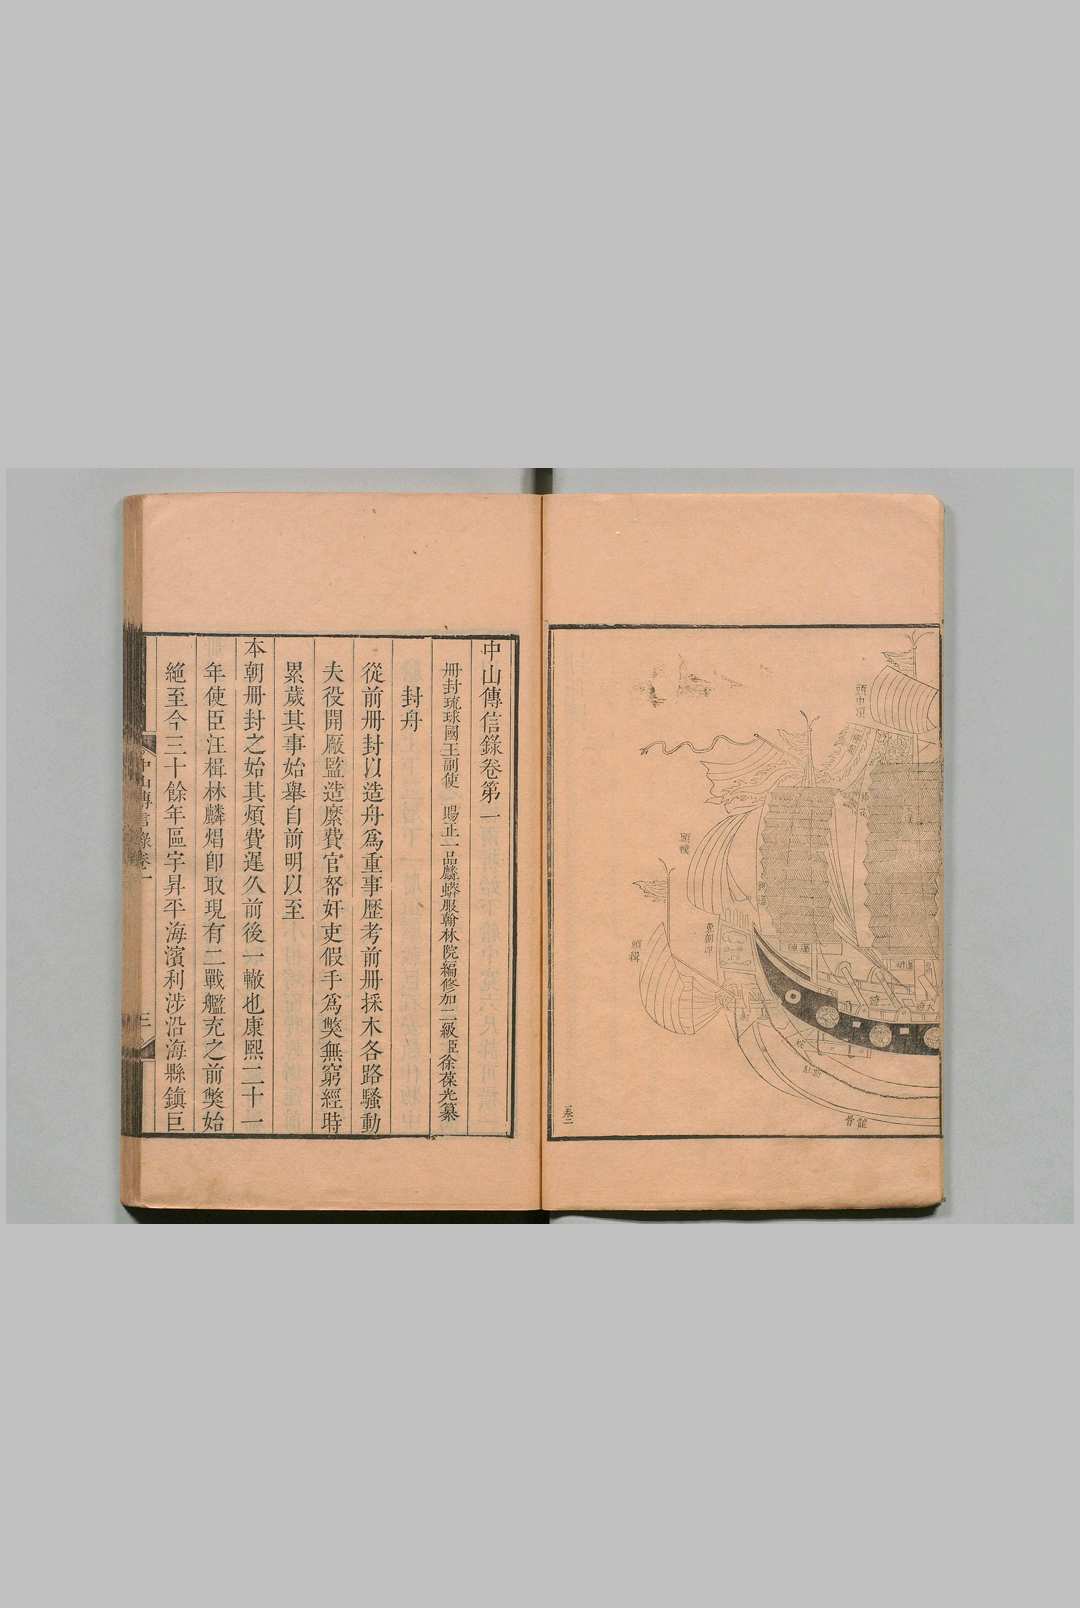 頭巾頂
頭幞
頭緝
龍骨
中山傳信錄卷第一
冊封琉球國王副使 賜正一品麟蟒服翰林院編修加二級臣徐葆光纂
封舟
從前冊封以造舟爲重事歷考前冊採木各路騷動
夫役開廠監造縻費官帑奸吏假手爲獘無窮經時
累歲其事始舉自前明以至
本朝冊封之始其煩費遲久前後一轍也康熙二十一
年使臣汪楫林麟焻卽取現有二戰艦充之前獘始
絕至今三十餘年區宇昇平海濱利涉沿海縣鎮巨
中山傳信錄卷一